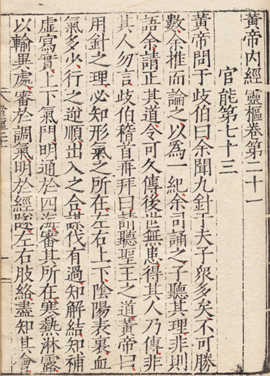 黃帝內經靈樞卷第二十一
官能第七十三
黃帝問于歧伯曰余聞九針于夫子衆多矣不可勝
數余推而論之以為一紀余司誦之子聽其理非則
語余請正其道令可久傳後世無患得其人乃傳非
其人勿言歧伯稽首再拜曰請聽聖王之道黃帝曰
用針之理必知形氣之所在左右上下陰陽表裏血
氣多少行之逆順出入之合謀伐有過知解結知補
虛寫實上下氣門明通於四海審其所在寒熱淋露
以輸異處審於調氣明於經隧左右肢絡盡知其會